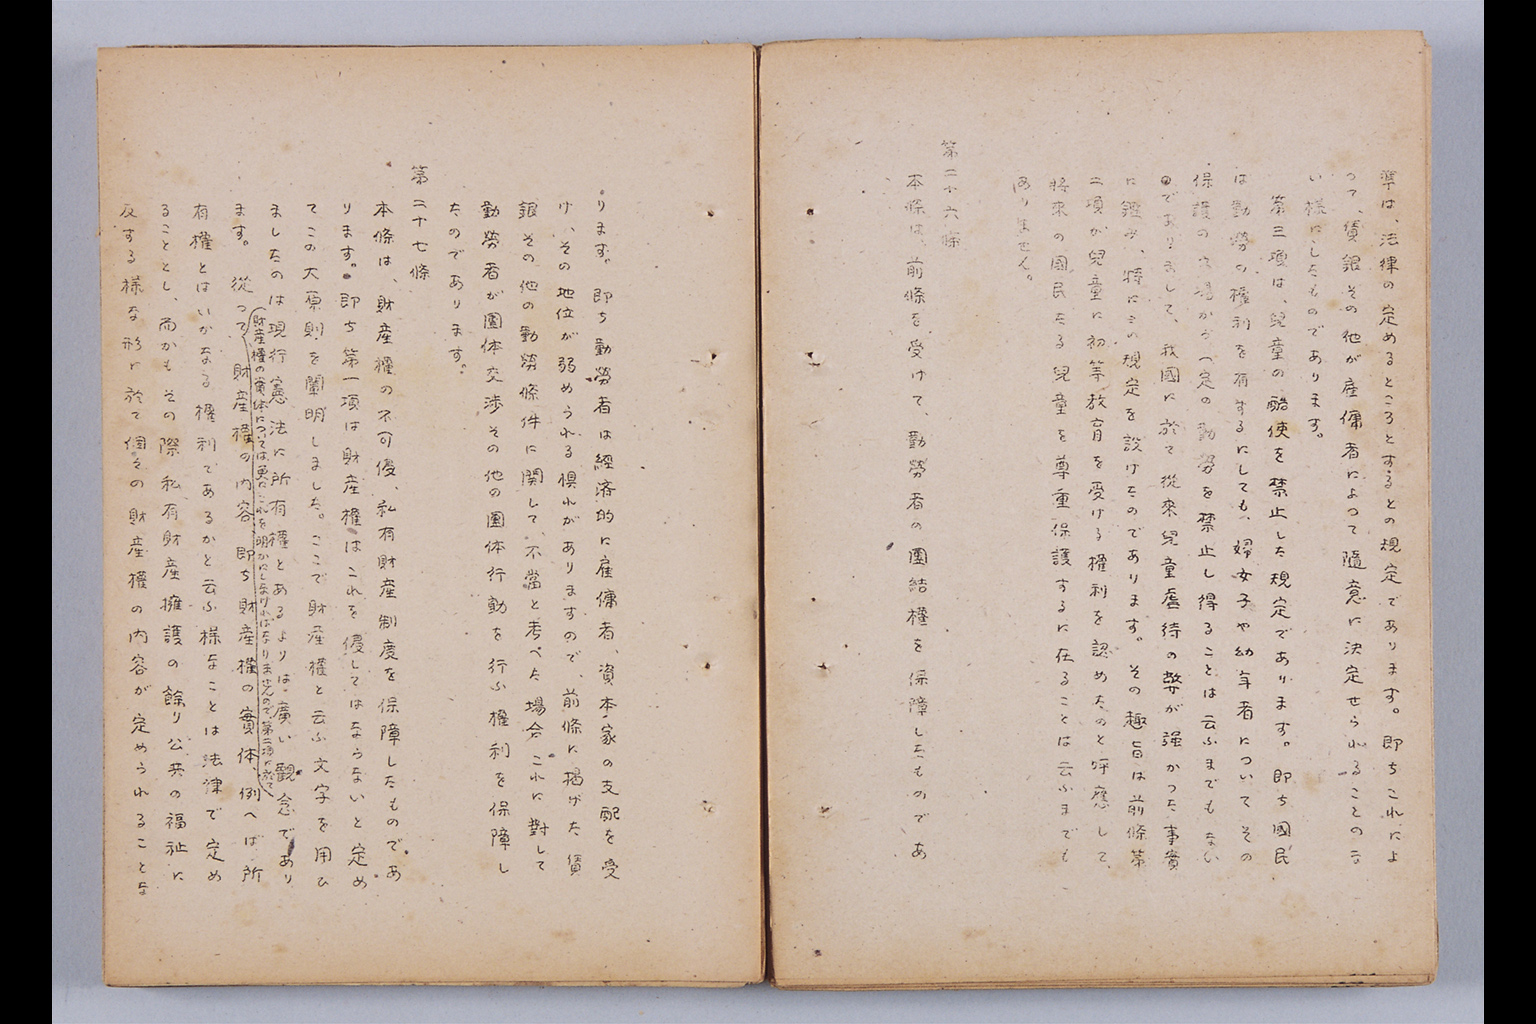 準は、法律の定めるところとするとの規定であります。即ちこれによ
つて、賃銀その他が雇傭者によつて隨意に決定せられることのな
い様にしたものであります。
第三項は、兒童の酷使を禁止した規定であります。即ち國民
は勤勞の權利を有するにしても、婦女子や幼年者についてその
保護の立場から一定の勤勞を禁止し得ることは云ふまでもない
のでありまして、我國に於て從來兒童虐待の弊が強かつた事實
に鑑み、特にこの規定を設けたのであります。その趣旨は前條第
二項が兒童に初等教育を受ける權利を認めたのと呼應して、
將來の國民たる兒童を尊重保護するに在ることは云ふまでも
ありません。
第二十六條
本條は、前條を受けて、勤勞者の團結權を保障したものであ
ります。即ち勤勞者は經済的に雇傭者、資本家の支配を受
け、その地位が弱められる惧れがありますので、前條に掲げた賃
銀その他の勤勞條件に関して、不當と考へた場合これに對して
勤勞者が團体交渉その他の團体行動を行ふ權利を保障し
たのであります。
第二十七條
本條は、財産權の不可侵、私有財産制度を保障したものであ
ります。即ち第一項は財産權はこれを侵してはならないと定め
てこの大原則を闡明しました。ここで財産權と云ふ文字を用ひ
ましたのは現行憲法に所有權とあるよりは廣い觀念であり
ます。從つて財産權の内容、即ち財産權の實体、例へば所
財産權の實体については更にこれを明かにしなければなりませんので、第二項に於て
有權とはいかなる權利であるかと云ふ様なことは法律で定め
ることとし、而かもその際私有財産擁護の餘り公共の福祉に
反する様な形に於て個々の財産權の内容が定められることな